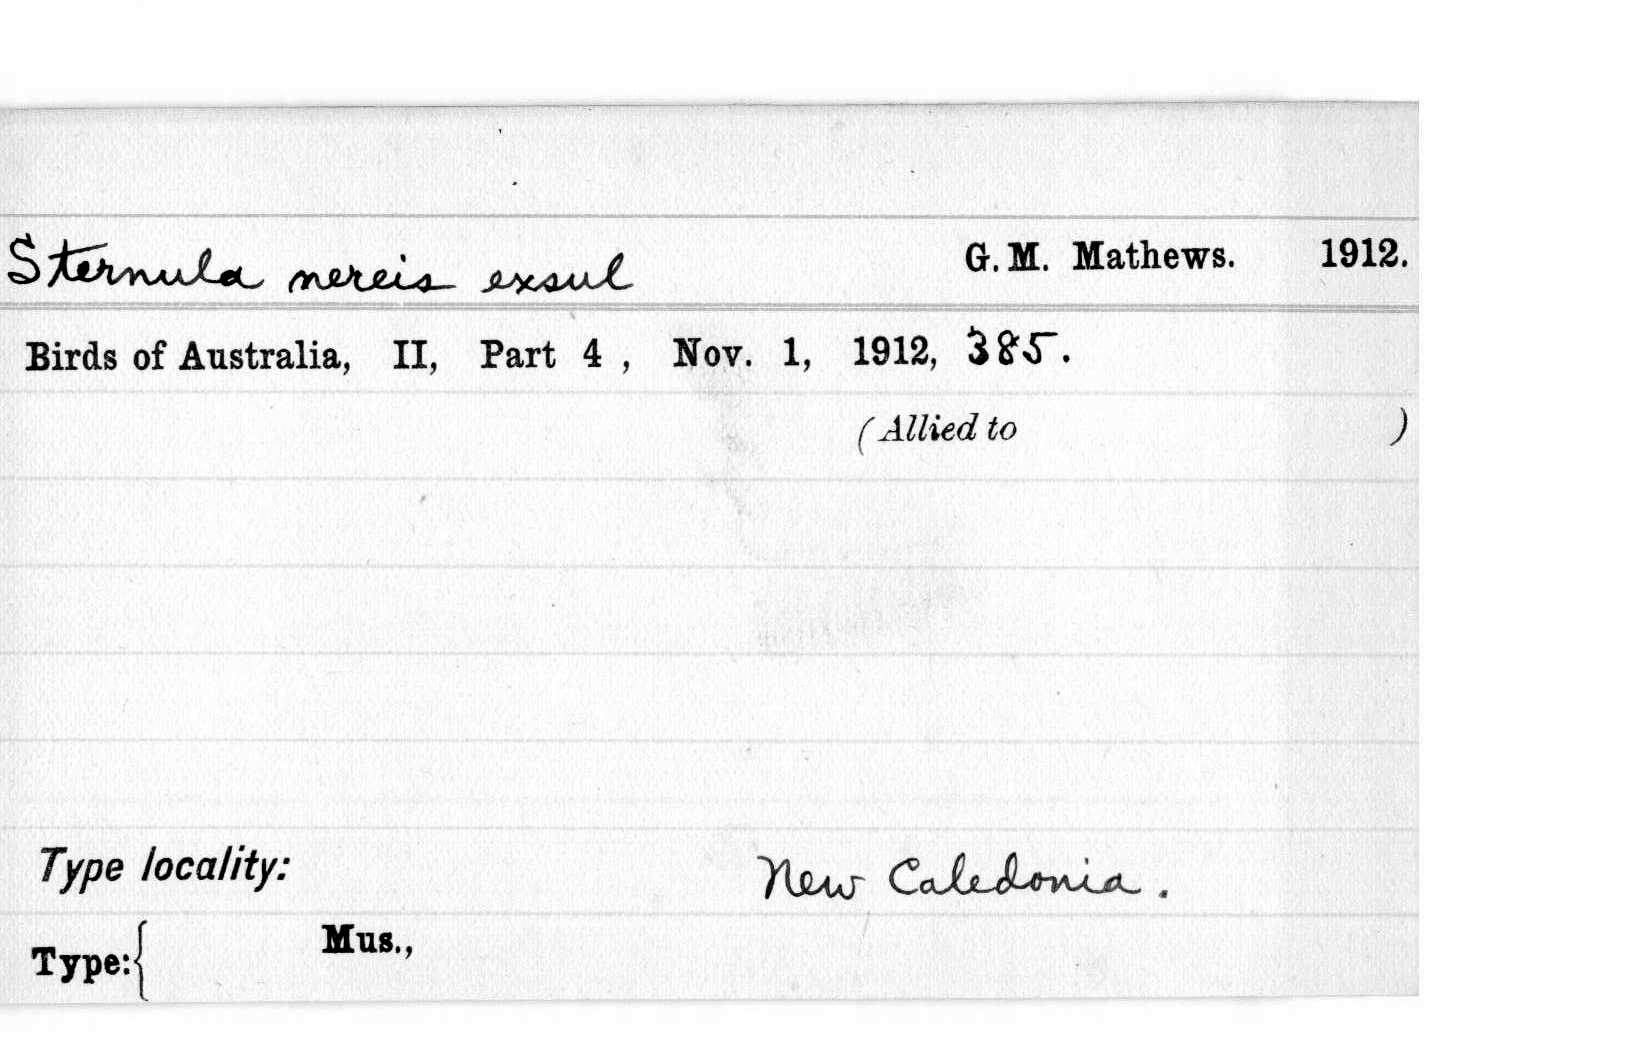 Sternula nereis exsul G. M. Mathews. 1912.
Birds of Australia, II, Part 4 , Nov. 1, 1912, 385.
(Allied to )
Type locality: New Caledonia.
Type:{ Mus.,